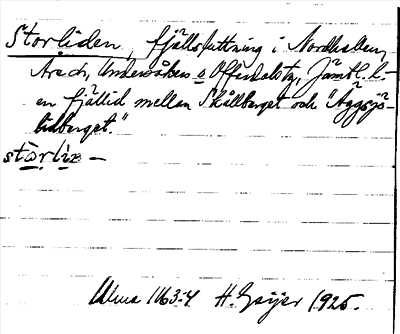 Storliden, fjällsluttning i Nordhallen,
Åre sn, Undersåkers o Offerdals tg, Jämtl. l.
en fjällid mellan Skållberget och "Äggsjö-
lidberget."
storlin –
Ulma 1163:4 H. Geijer 1925.